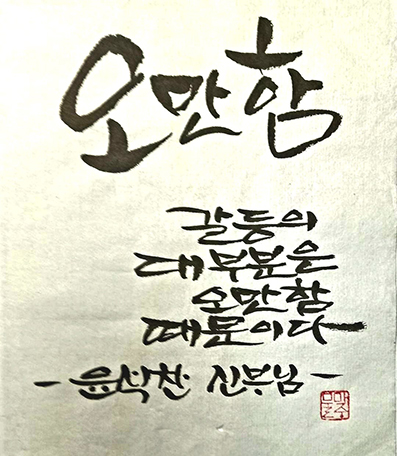 오만함
갈등의
대부분은
오만함
때문이다
- 윤석찬 신부님 -